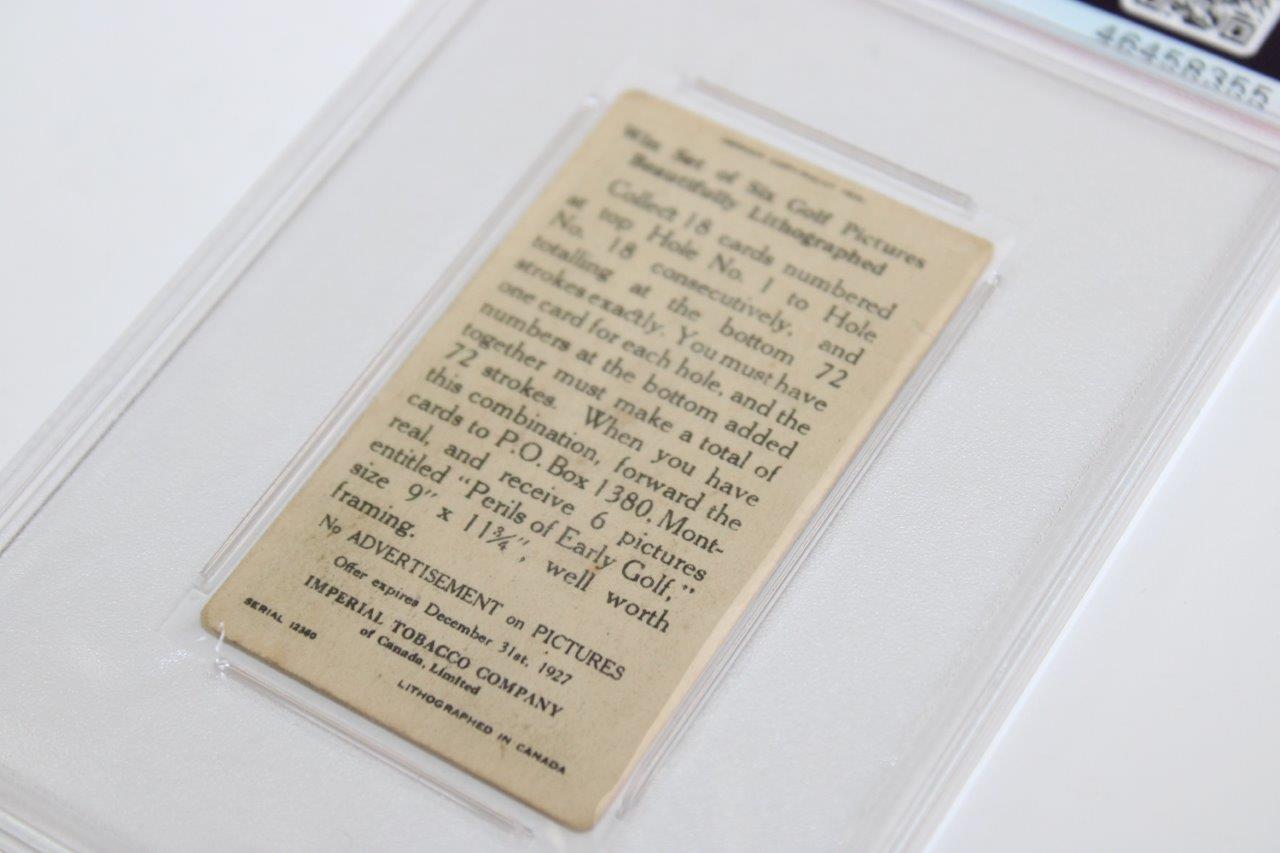 46458355
Win Set of Six Golf Pictures
Beautifully Lithographed
Collect 18 cards numbered
at top Hole No. 1 to Hole
No. 18 consecutively, and
totalling at the bottom 72
strokes exactly. You must have
one card for each hole, and the
numbers at the bottom added
together must make a total of
72 strokes. When you have
this combination, forward the
cards to P.O. Box 1380, Mont-
real, and receive 6 pictures
entitled "Perils of Early Golf,"
size 9" x 11¾", well worth
framing.
No ADVERTISEMENT on PICTURES
Offer expires December 31st, 1927
IMPERIAL TOBACCO COMPANY
of Canada, Limited
SERIAL 12360
LITHOGRAPHED IN CANADA